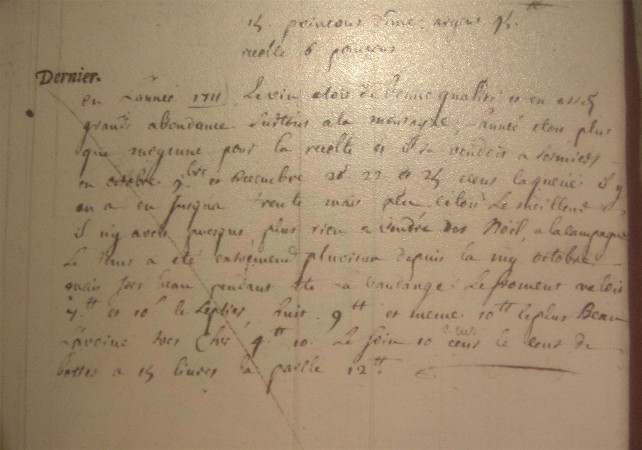 15 poincons
recolte 6 poincons
Dernier.
en L'année 1711 Le vin etoit de bonne qualité et en assés
grande abondance surtout a la montagne, L'année etoit plus
que moyenne pour la recolte et il se vendoit a
en octobre 9.bre et Decembre 20 22 et 25 ecus la queue il y
en a eu jusqua trente mais peu, c'etoit Le meilleur
il n'y avoit presque plus rien a vendre des Noël, a la campagne
Le tems a été extremement pluvieux depuis la my octobre
mais fort beau pendant La boulange Le froment valoit
7.tt et 10s huit. 9tt et meme 10tt le plus Beau
L'avoine tres cher 4.tt 10. Le foin 10 ecus le cent de
bottes a 15 livres la paille 12tt.